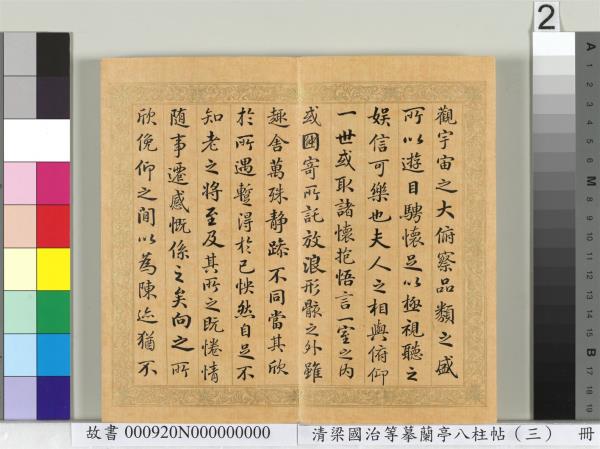 觀宇宙之大俯察品類之盛
所以遊目騁懷足以極視聽之
娛信可樂也夫人之相與俯仰
一世或取諸懷抱悟言一室之內
或因寄所託放浪形骸之外雖
趣舍萬殊靜躁不同當其欣
於所遇暫得於己怏然自足不
知老之將至及其所之既惓情
隨事遷感慨係之矣向之所
欣俛仰之間以為陳迹猶不
2
A 1 2 3 4 5 6 M 8 9 10 11 12 13 14 15 B 17 18 19
故書 000920N000000000
清梁國治等摹蘭亭八柱帖(三) 冊